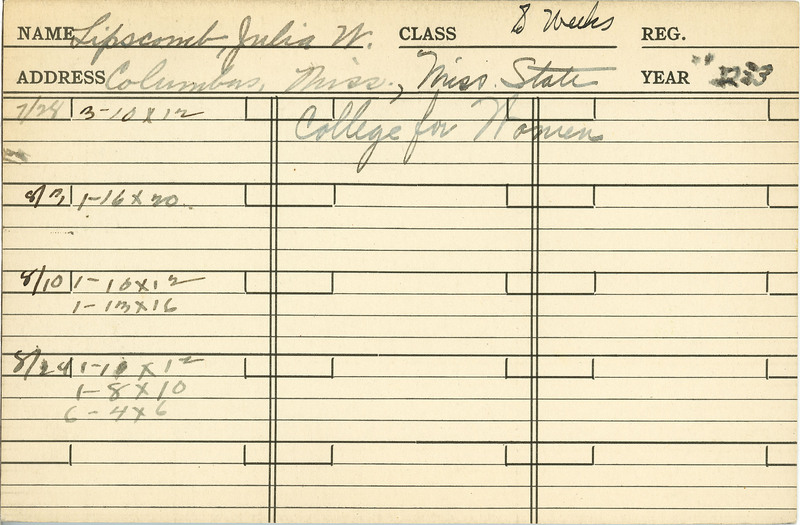 NAME Lipscomb, Julia W. CLASS 8 Weeks REG.
ADDRESS Columbus, Miss., Miss. State YEAR
College for Women
7/28 3-10 x 12
1-16 x 20
8/10 1-10 x 12
1-13 x 16
8/24 1-10 x 12
1-8 x 10
6-4 x 6